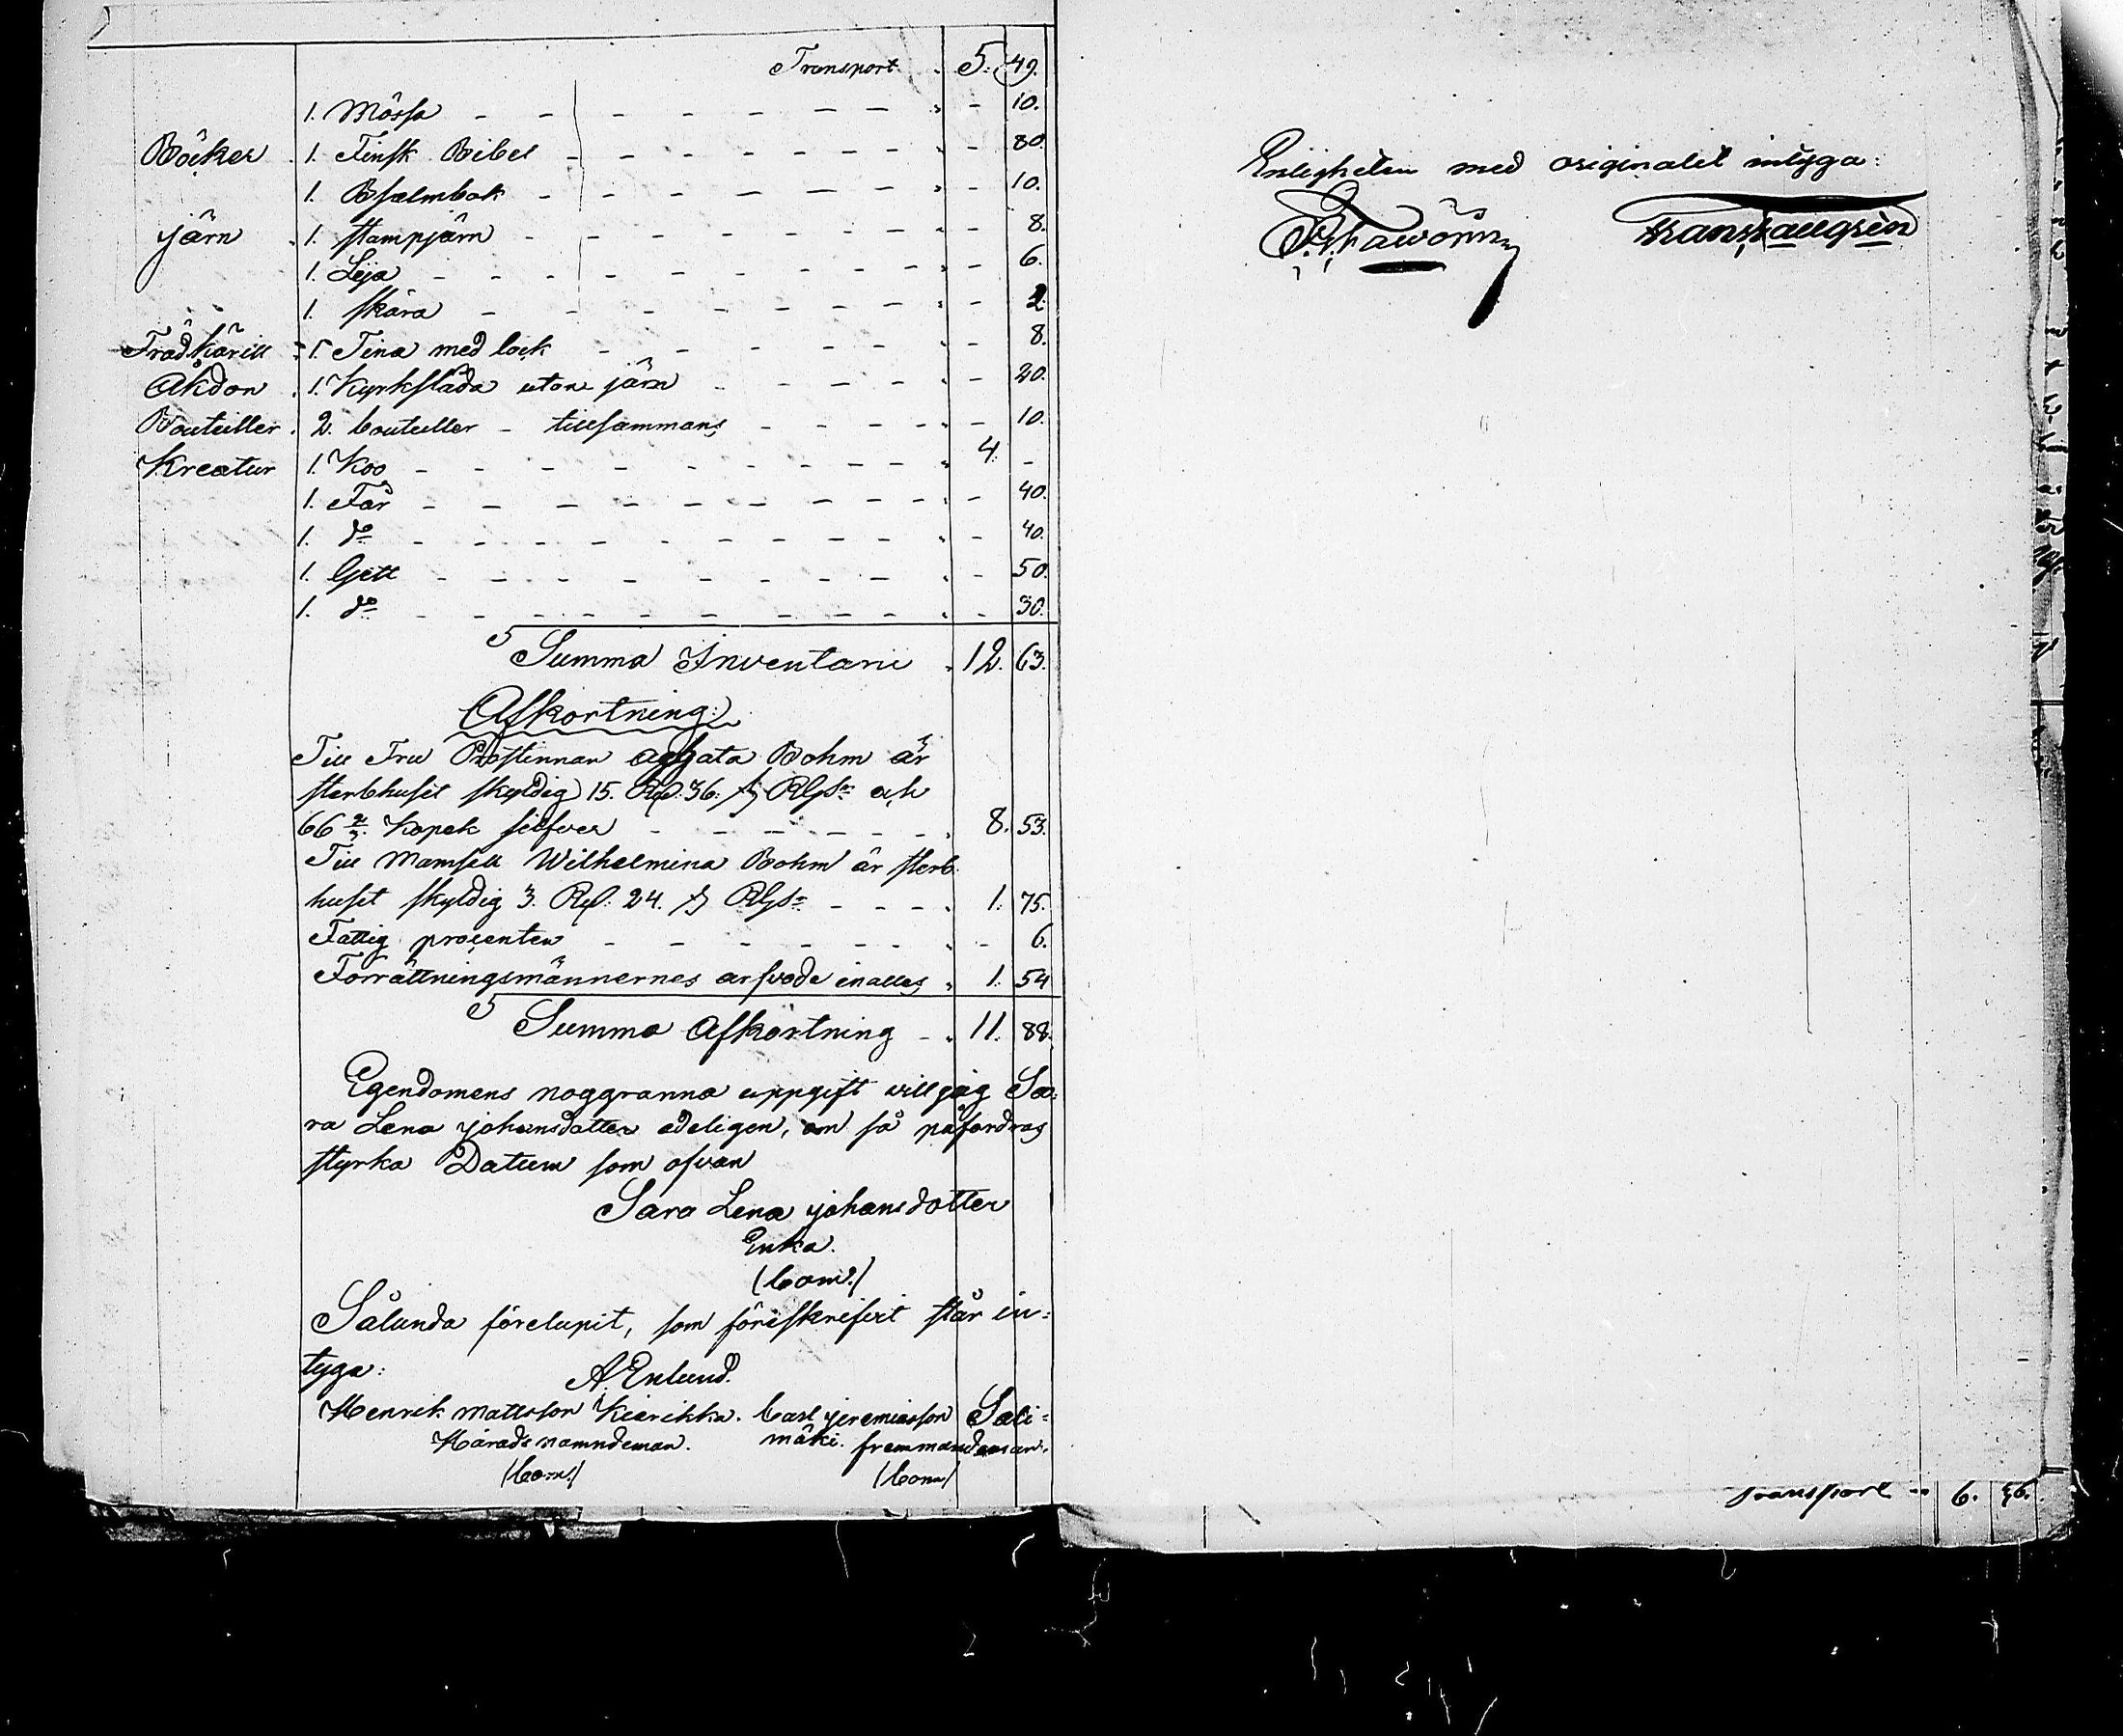 Transport. 5. 49.
1. Mössa - - - - - - - - 10.
Böcker. 1. Finsk Bibel - - - - - - - - 80.
1. Psalmbok - - - - - - - - 10.
järn. 1. stampjärn - - - - - - - - 8.
1. Lija - - - - - - - - 6.
1. skära - - - - - - - - 2.
Trädkärill 1. Tina med lock - - - - - - 8.
Åkdon. 1. Kyrksläda utan järn - - - - - 20.
Bouteiller. 2. bouteiller - tillsammans - - - - - 10.
Kreatur 1. Koo - - - - - - - - 4. -
1. Får - - - - - - - - - 40.
1. do - - - - - - - - - 40.
1. Gett - - - - - - - - - 50.
1. do - - - - - - - - - 30.
Summa Inventarii. 12. 63.
Afkortning:
Till Fru Prostinnan Aghata Bohm är
sterbhuset skyldig 15. Rd. 36. RGs och
66 2/3. Kopek silfver - - - - - - 8. 53.
Till Mamsell Wilhelmina Bohm är sterb-
huset skyldig 3. Rd. 24. RGs - - - - 1. 75.
Fattig procenten - - - - - - - 6.
Förrättningsmännernes arfvode inalles. 1. 54
Summa Afkortning - 11. 88.
Egendomens noggranna uppgift vill jag Sa=
ra Lena Johansdotter edeligen, om så påfordras
styrka Datum som ofvan
Sara Lena Johansdotter
Enka.
(bom.)
Sålunda förelupit, som föreskrifvit står in=
tyga:
A. Enlund.
Henrik Mattsson Kiarikka. Carl Jeremiasson Sali=
Härads nämndeman. mäki. fremmandeman.
(bom.) (bom)
Enligheten med originalet intyga:
Transport 6. 56.